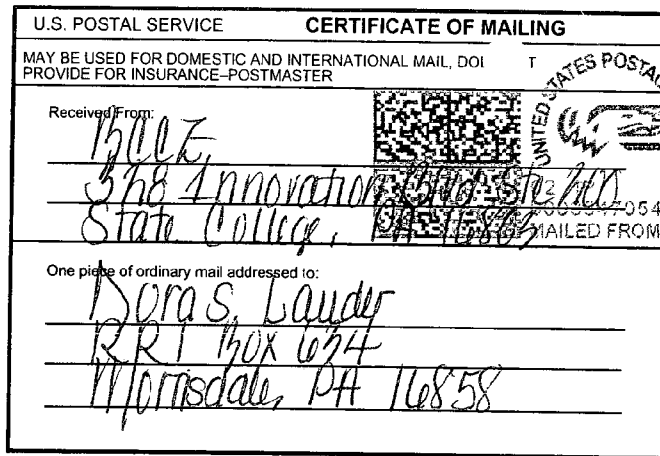 U.S. POSTAL SERVICE CERTIFICATE OF MAILING
MAY BE USED FOR DOMESTIC AND INTERNATIONAL MAIL, DOE T
PROVIDE FOR INSURANCE–POSTMASTER
UNITED STATES POSTAL
Received From:
328 Innovation Blvd Ste 200
State College, PA 16803
MAILED FROM
One piece of ordinary mail addressed to:
Dora S. Lauder
RR1 Box 634
Morrisdale, PA 16858